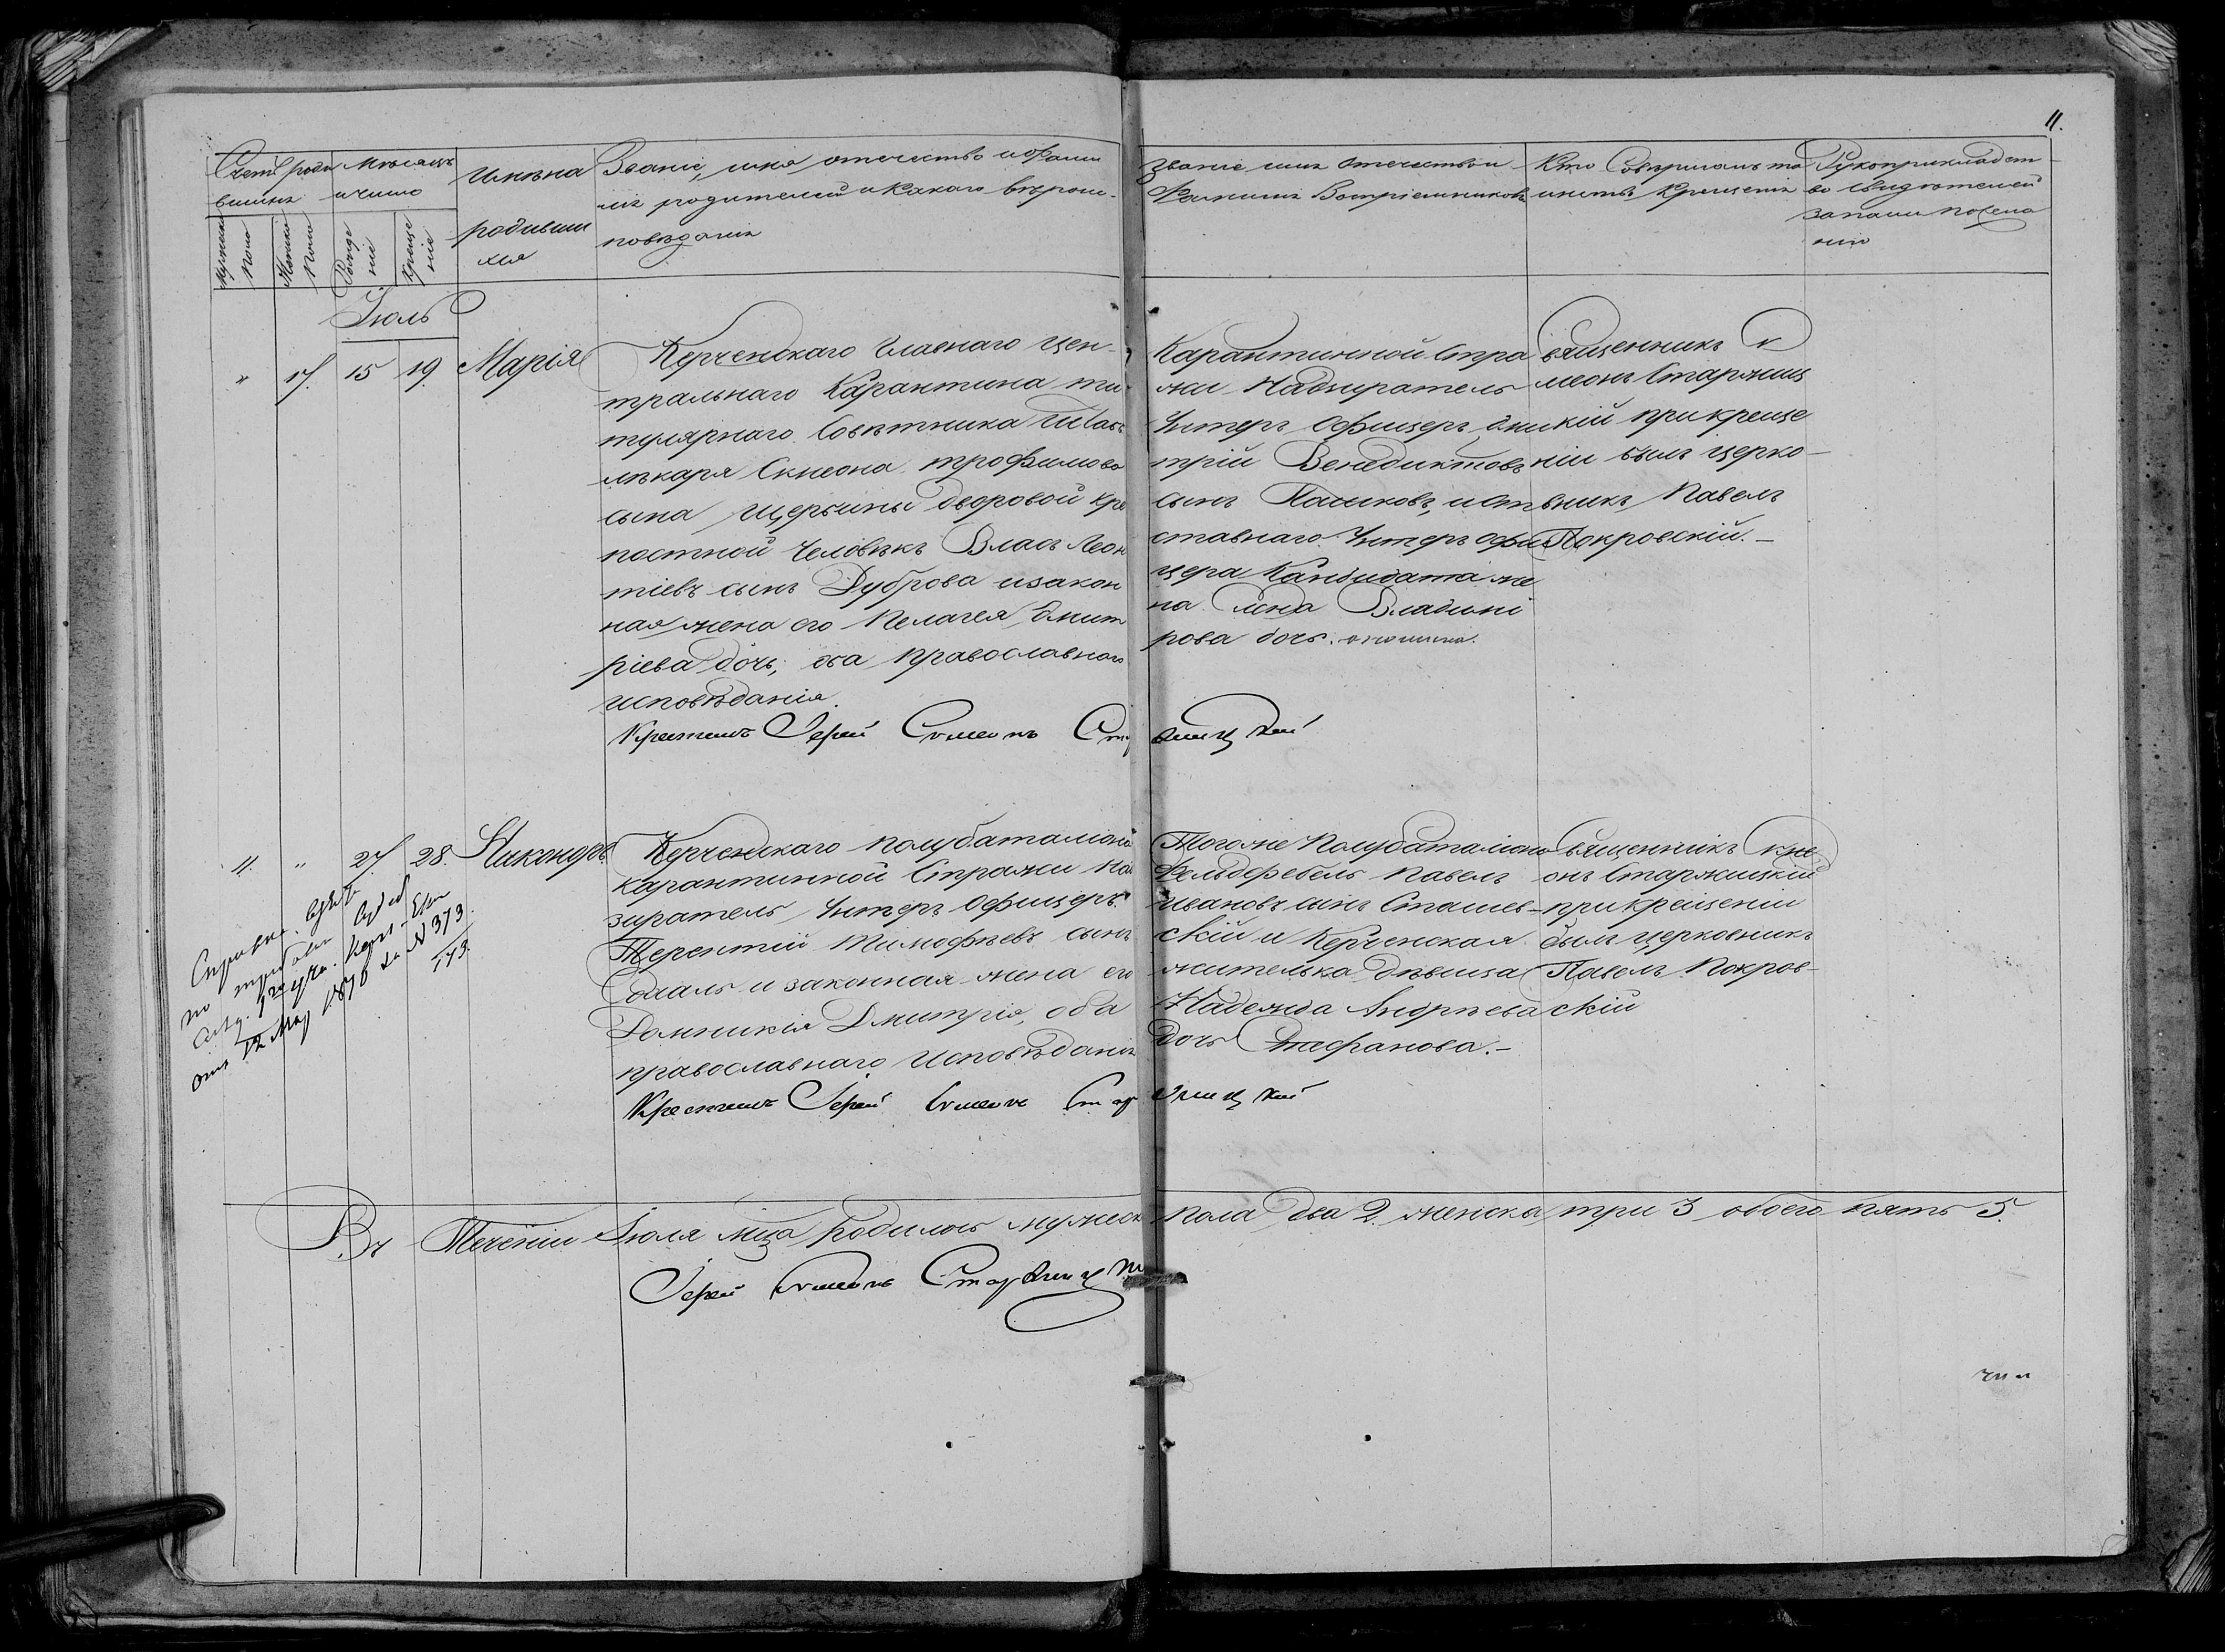 11.
Счетъ роди
вшихъ
Мѣсяцъ
и число
мужеска
пола
женска
пола
Рожде
ніе
Креще
ніе
Имѣна
родивши
хся
Званіе, имя отчество и фами
лія родителей и какого вѣроис-
повѣданія
Званіе имя отечество и
Фамилія Воспріемниковъ
Кто Совершалъ та
инство Крещенія
Рукоприкладст
во свидѣтелей
записи по жела
нію
Іюль
" 17. 15 19. Марія
Керченскаго Главнаго Цен-
тральнаго Карантина ти-
тулярнаго Совѣтника Штабъ
лѣкаря Симеона Трофимова
сына Щербины дворовой крѣ
постной Человѣкъ Власъ Леон
тіевъ сынъ Дуброва и закон
ная жена его Пелагея Дмит
ріева дочь, оба православнаго
исповѣданія.
Карантинной Стра
жи Надзиратель
Унтеръ Офицеръ Дми
трій Венедиктовъ
сынъ Пашковъ, и от
ставнаго Унтеръ офи
цера Кандидата же
на Анна Владимі
рова дочь.
Священникъ Си
меонъ Старжиц
кій при креще
ніи былъ церко-
вникъ Павелъ
Покровскій.-
Крестилъ Іерей Симеонъ Старжицкій
11. " 27 28. Никоноръ
Керченскаго полубаталіона
карантинной Стражи На
зиратель, Унтеръ Офицеръ
Терентій Тимофѣевъ сынъ
и законная жена его
Домникія Дмитрія, оба
православнаго Исповѣданія
Тогоже Полубаталіона
Фельдфебель Павелъ
Ивановъ сынъ Сташев-
скій и Керченская
жителька дѣвица
Надежда Андрѣева
дочь Стефанова.-
Священникъ Симе
онъ Старжицкій
при крещеніи
былъ церковникъ
Павелъ Покров-
скій
Справка
по требован
Керч-Ени
отъ 12 Мар 1876 за N 373
173.
Крестилъ Іерей Симеонъ Старжицкій
Въ Теченіи Іюля мца родилось мужеск пола два 2. женска три 3 обоего пять 5.
Іерей Симеонъ Старжицкій